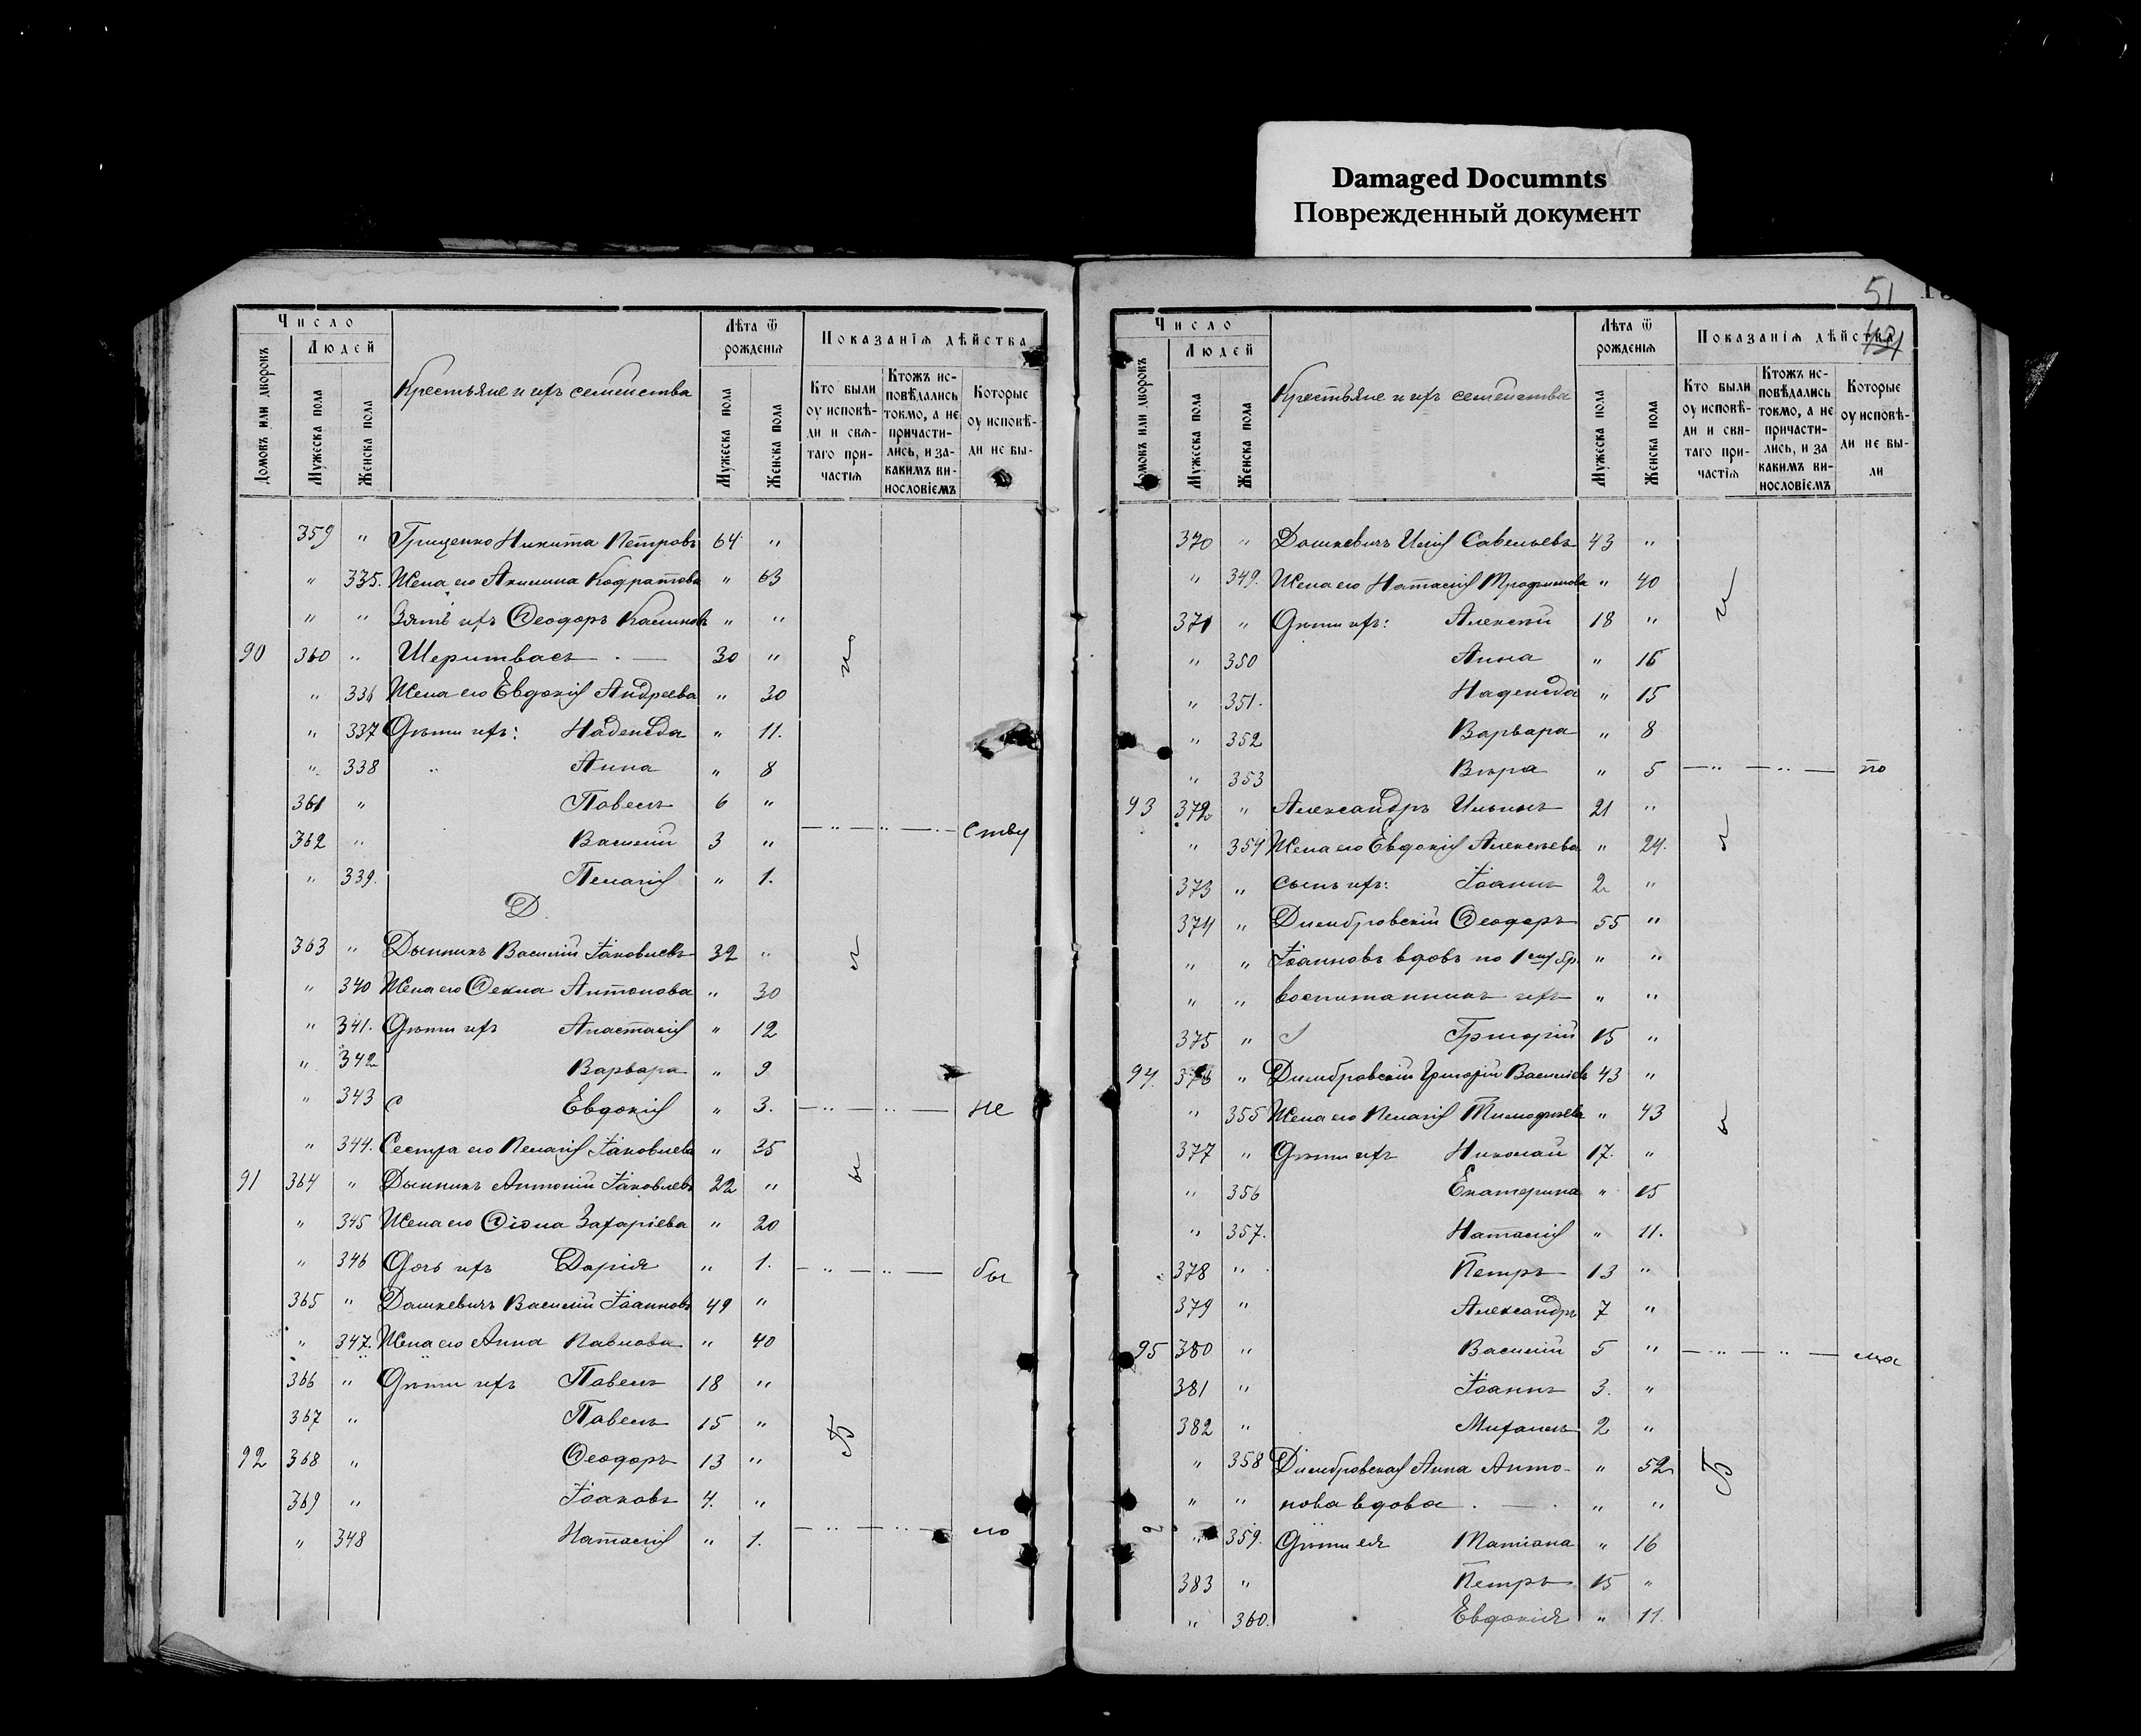 Damaged Documnts
Поврежденный документ
Число
Людей
Домовъ или дворовъ
Мужеска пола
Женска пола
Крестьяне и ихъ семейства
Лѣта ѿ рожденія
Мужеска пола
Женска пола
Показанія дѣйства
Кто были оу исповѣди и свѧтаго причастіѧ
Ктожъ исповѣдались токмо, а не причастились, и за какимъ винословіемъ
Которые оу исповѣди не бы-
359 " Грищенко Никита Петровъ 64 "
" 335. Жена его Акилина Кодратова " 63
" " Зять ихъ Ѳеодоръ Калиновъ " "
90 360 " Шеритвасъ 30 "
" 336 Жена его Евдокія Андреева " 30
" 337 Дѣти ихъ: Надежда " 11.
" 338 " Анна " 8
361 " Павелъ 6 "
362 " Василій 3 " — " — " — " — Ству
" 339. Пелагія " 1.
Д
363 " Дынникъ Василій Іаковлевъ 32 "
" 340 Жена его Ѳекла Антонова " 30
" 341. Дѣти ихъ Анастасія " 12
" 342 Варвара " 9
" 343 Евдокія " 3. — " — " — не
" 344. Сестра его Пелагія Іаковлева " 25
91 364 " Дынникъ Антоній Іаковлевъ 22 "
" 345 Жена его Ѳіона Захаріева " 20
" 346 Дочь ихъ Дарія " 1. — " — " — бы
365 " Дашкевичъ Василій Іоанновъ 49 "
" 347. Жена его Анна Павлова " 40
366 " Дѣти ихъ Павелъ 18 "
367 " Павелъ 15 "
92 368 " Ѳеодоръ 13 "
369 " Іаковъ 4. "
" 348 Наталія " 1. — " — " — ло
51
Число
Людей
Домовъ или дворовъ
Мужеска пола
Женска пола
Крестьяне и ихъ семейства
Лѣта ѿ рожденія
Мужеска пола
Женска пола
Показанія дѣйства
Кто были оу исповѣди и свѧтаго причастіѧ
Ктожъ исповѣдались токмо, а не причастились, и за какимъ винословіемъ
Которые оу исповѣди не были
370 " Дашкевичъ Илія Савельевъ 43 "
" 349. Жена его Наталія Трофимова " 40
371 " Дѣти ихъ: Алексѣй 18 "
" 350 Анна " 16
" 351. Надежда " 15
" 352 Варвара " 8
" 353 Вѣра " 5 — " — " — по
93 372 " Александръ Ильинъ 21 "
" 354 Жена его Евдокія Алексѣева " 24.
373 " сынъ ихъ: Іоаннъ 2 "
374 " Димбровскій Ѳеодоръ 55 "
" " Іоанновъ вдовъ по 1 ему бр. " "
" " воспитанникъ ихъ " "
375 " Григорій 15 "
94. 376 " Димбровскій Григорій Василіевъ 43 "
" 355 Жена его Пелагія Тимофѣева " 43
377 " Дѣти ихъ Николай 17. "
" 356 Екатерина " 15
" 357. Наталія " 11.
378 " Петръ 13 "
379 " Александръ 7 "
95 380 " Василій 5 " — " — " —
381 " Іоаннъ 3. "
382 " Михаилъ 2 "
" 358 Димбровская Анна Анто- " 52
" " нова вдова " "
" 359. Дѣти ея Татіана " 16
383 " Петръ 15 "
" 360. Евдокія " 11.